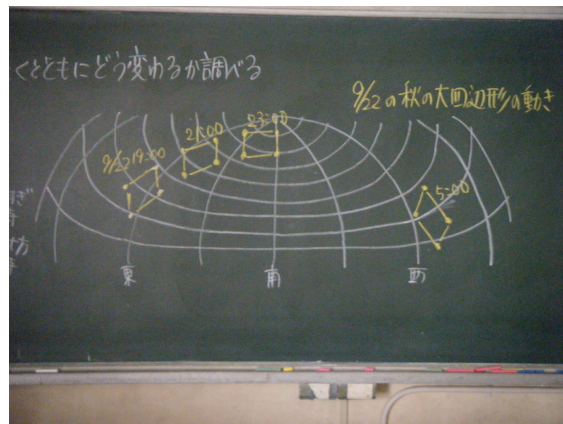 くとともにどう変わるか調べる
9/22の秋の大四辺形の動き
9/22 19:00
21:00
23:00
5:00
東
南
西